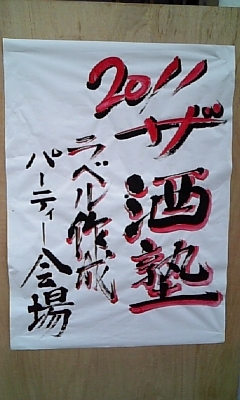 2011
ザ酒塾
ラベル作成
パーティー会場